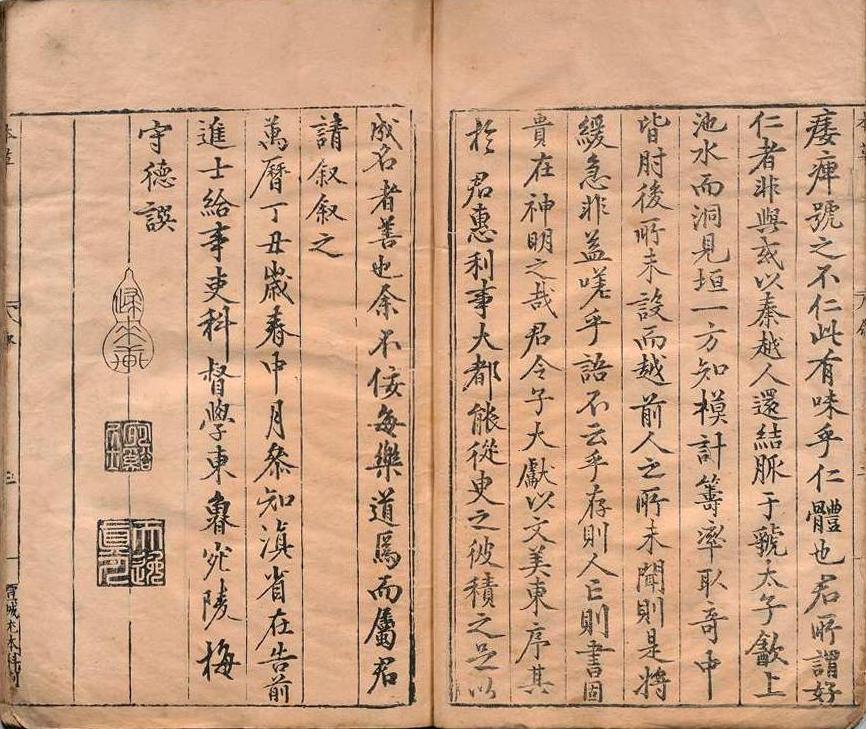 痿痺號之不仁此有味乎仁體也君所謂好
仁者非與或以秦越人還結脈于虢太子歙上
池水而洞見垣一方知模計籌率取奇中
皆肘後所未設而越前人之所未聞則是將
緩急非益嗟乎語不云乎存則人亡則書固
貴在神明之哉君令子大獻以文美東序其
於君惠利事大都能從史之彼積之足以
成名者善也余不佞每樂道焉而屬君
請叙叙之
萬曆丁丑歲春中月叅知滇省在告前
進士給事吏科督學東魯宛陵梅
守德譔